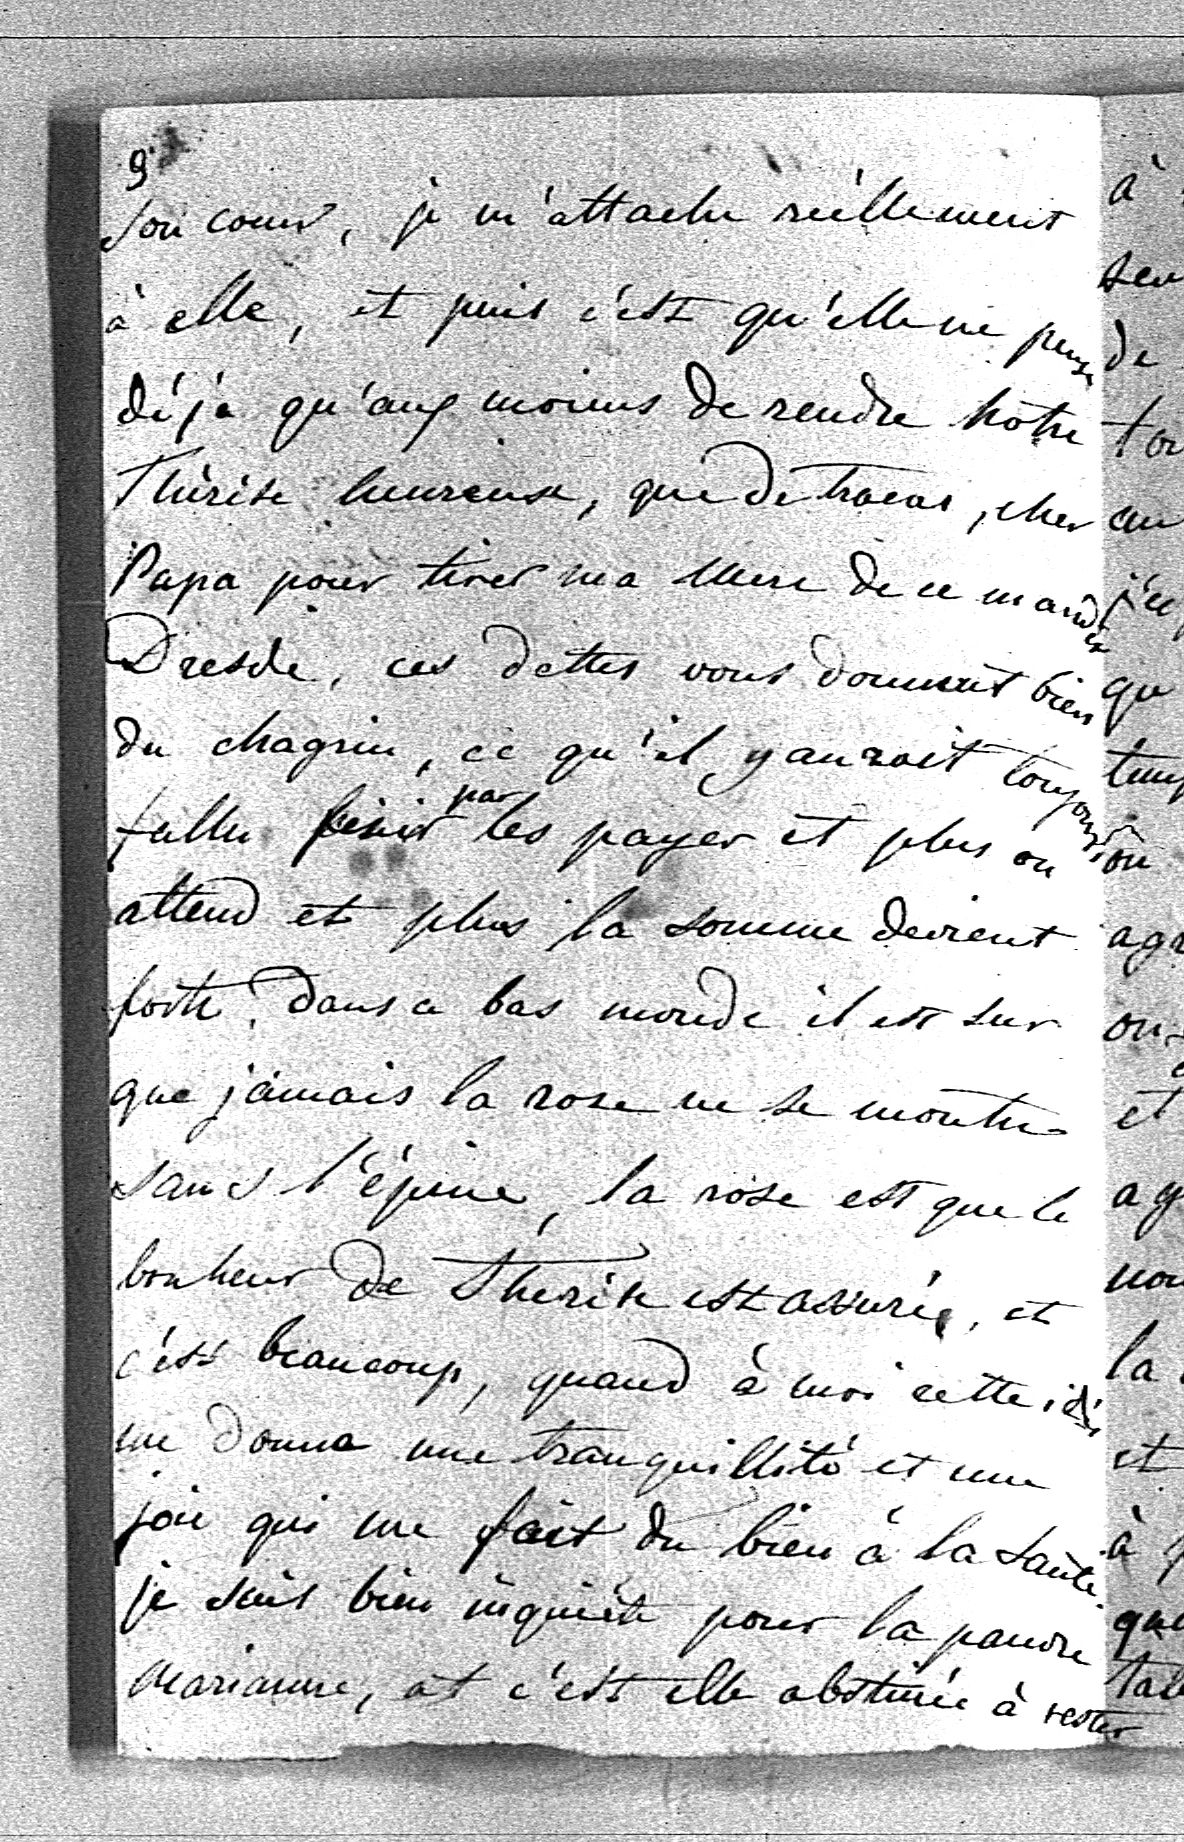 9
son coeur, je m'attache réellement
à elle, et puis c'est qu'elle ne pense
déjà qu'aux moiens de rendre nôtre
Thérèse heureuse, que de tracas, cher
Papa pour tirer ma Mere de ce maudit
Dresde, ces dettes vous donnent bien
du chagrin, ce qu'il y auroit toujours
fallu finir par les payer et plus on
attend et plus la somme devient
forte. dans ce bas monde il est sur
que jamais la rose ne se montre
sans l'épine, la rose est que le
bonheur de Thérèse est assuré, et
c'est beaucoup, quand à moi cette idée
me donne une tranquillité et une
joie qui me fait du bien à la santé.
je suis bien inquiéte pour la pauvre
Marianne, at c'est elle obstinée à rester